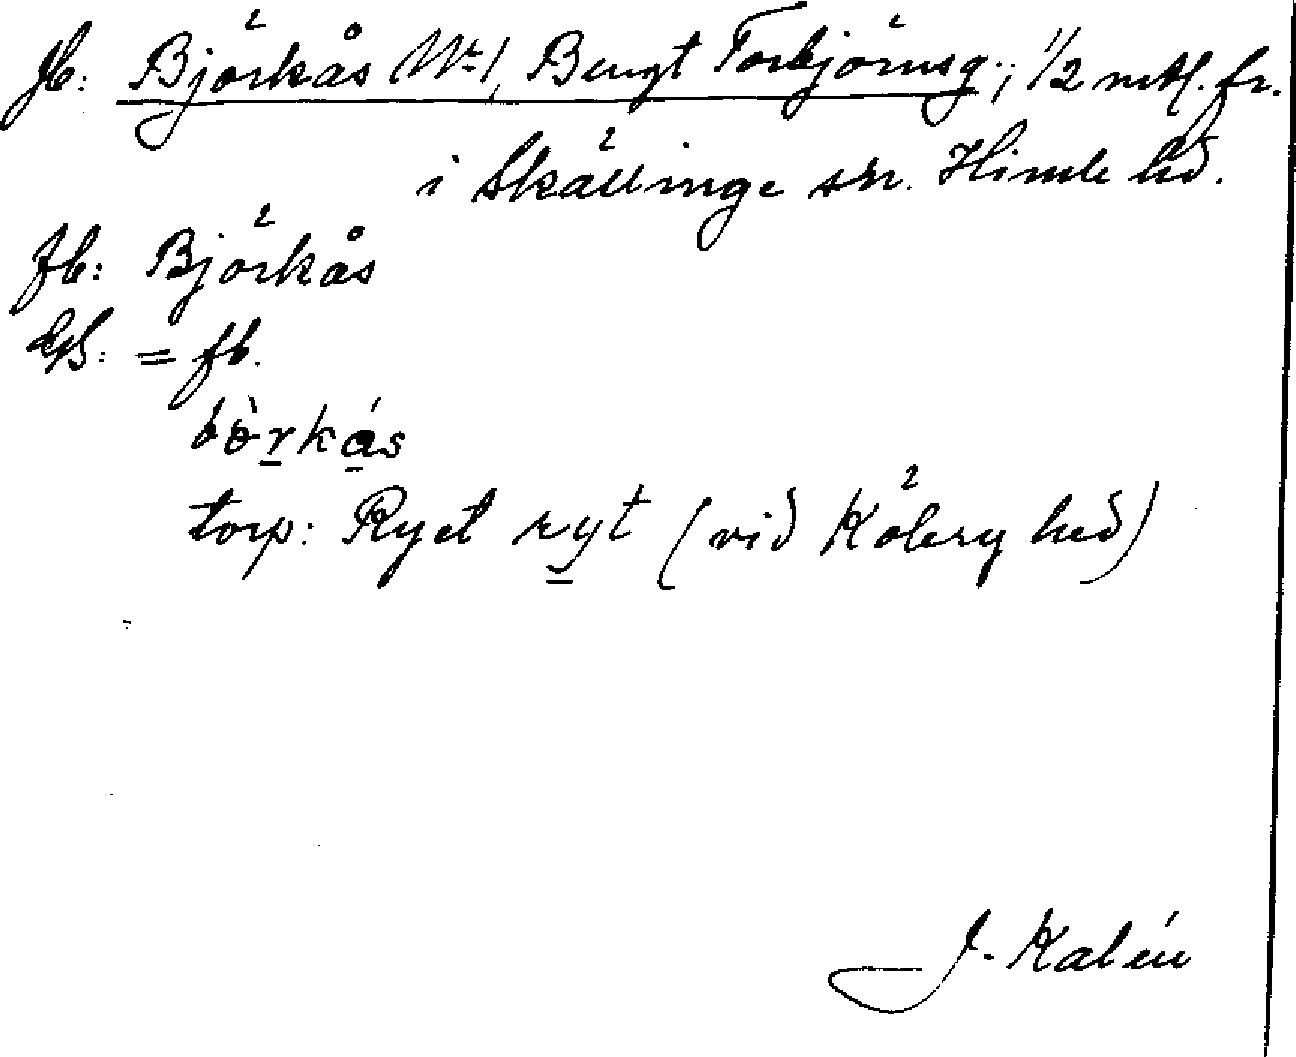 Jb: Björkås No 1, Bengt Torbjörnsg.; 1/2 mtl. fr.
i Skällinge sn. Himle hd.
fb: Björkås
= fb.
bö̀rkás
torp: Ryet ryt (vid Köberg hed)
J. Kalén